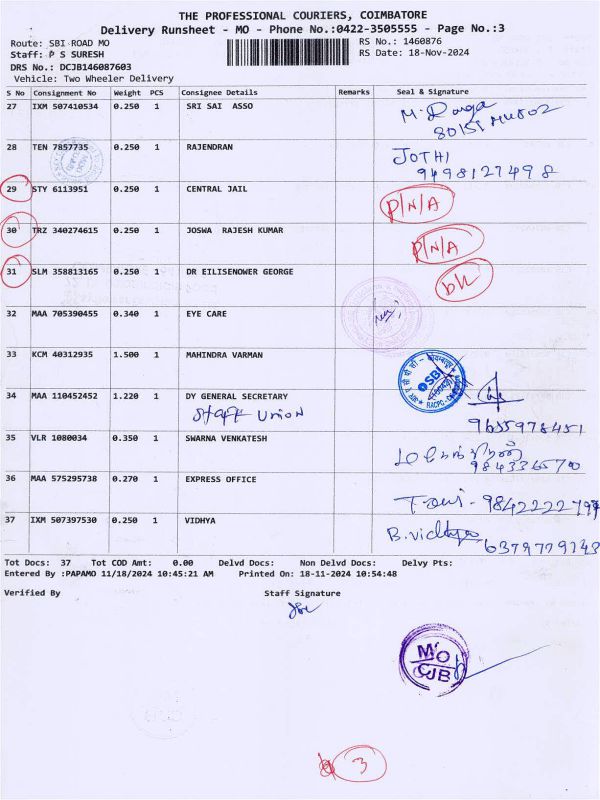 THE PROFESSIONAL COURIERS, COIMBATORE
Delivery Runsheet - MO - Phone No.:0422-3505555 - Page No.:3
Route: SBI ROAD MO
RS No.: 1460876
Staff: P S SURESH
RS Date: 18-Nov-2024
DRS No.: DCJB146087603
Vehicle: Two Wheeler Delivery
S No Consignment No Weight PCS Consignee Details Remarks Seal & Signature
27 IXM 507410534 0.250 1 SRI SAI ASSO
28 TEN 7857735 0.250 1 RAJENDRAN JOTHI
9498127498
29 STY 6113951 0.250 1 CENTRAL JAIL P/N/A
30 TRZ 340274615 0.250 1 JOSWA RAJESH KUMAR P/N/A
31 SLM 358813165 0.250 1 DR EILISENOWER GEORGE
32 MAA 705390455 0.340 1 EYE CARE
33 KCM 40312935 1.500 1 MAHINDRA VARMAN SBI
RACPC
34 MAA 110452452 1.220 1 DY GENERAL SECRETARY
Staff Union
9655978451
35 VLR 1080034 0.350 1 SWARNA VENKATESH
36 MAA 575295738 0.270 1 EXPRESS OFFICE
37 IXM 507397530 0.250 1 VIDHYA B. Vidhya
6379779743
Tot Docs: 37 Tot COD Amt: 0.00 Delvd Docs: Non Delvd Docs: Delvy Pts:
Entered By :PAPAMO 11/18/2024 10:45:21 AM Printed On: 18-11-2024 10:54:48
Verified By Staff Signature
MO
CJB
3